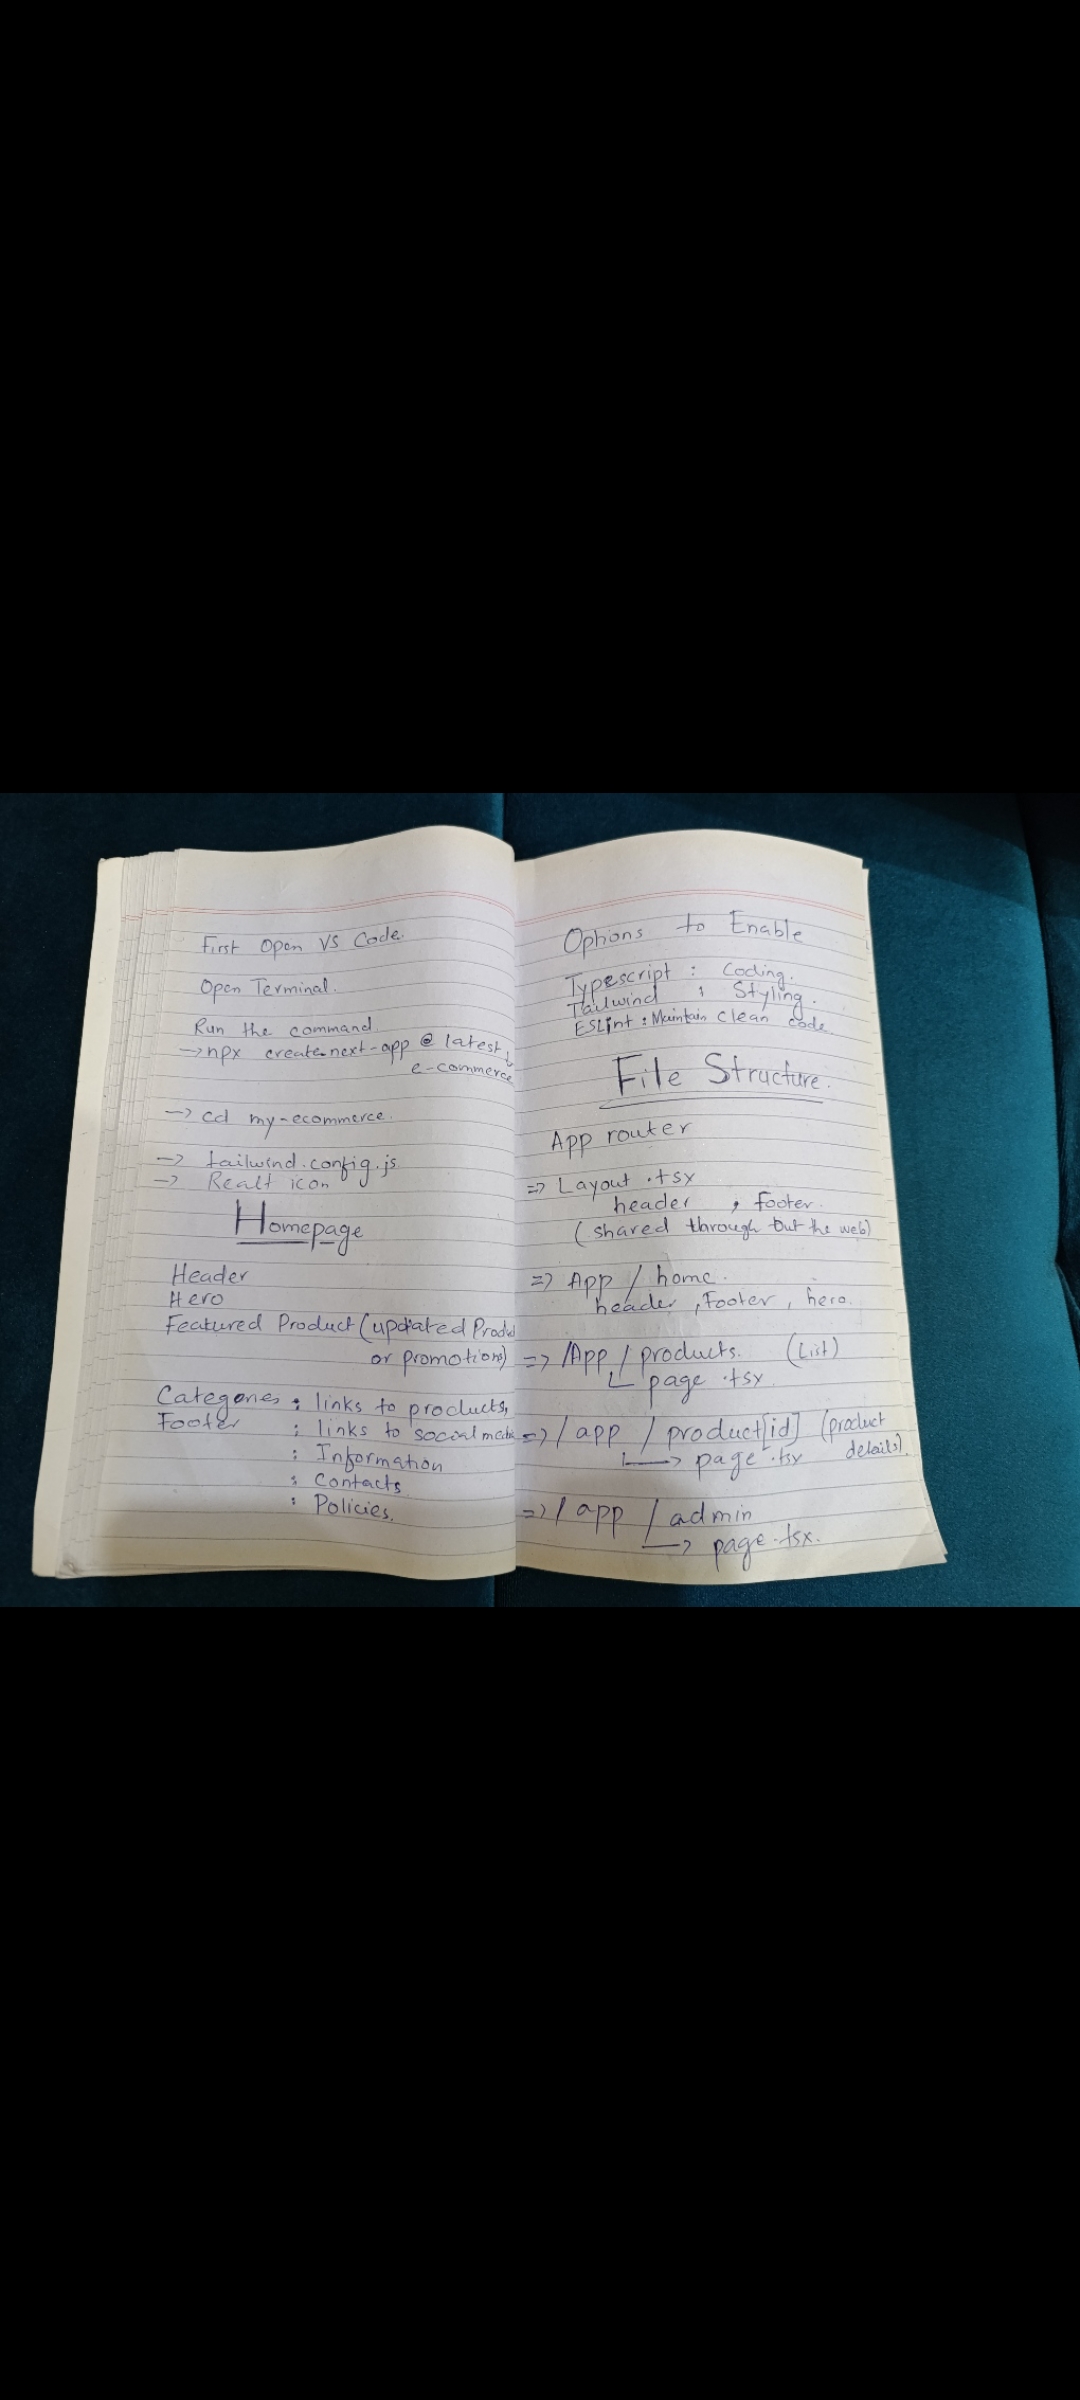 First Open VS Code.
Open Terminal.
Run the command
→ npx create-next-app @ latest
e-commerce
→ cd my-ecommerce.
→ tailwind.config.js
→ Realt icon
Homepage
Header
Hero
Featured Product (updated Produ
or promotions)
Categories : links to products,
Footer : links to social media
: Information
: Contacts
: Policies.
Options to Enable
Typescript : Coding.
Tailwind : Styling.
ESLint : Maintain clean code
File Structure.
App router
=> Layout .tsx
header , footer.
(shared through out the web)
=> App / home.
header , Footer , hero.
=> /App / products. (List)
page .tsx
=> / app / product[id] (product
→ page .tsx details).
=> / app / admin
→ page .tsx.